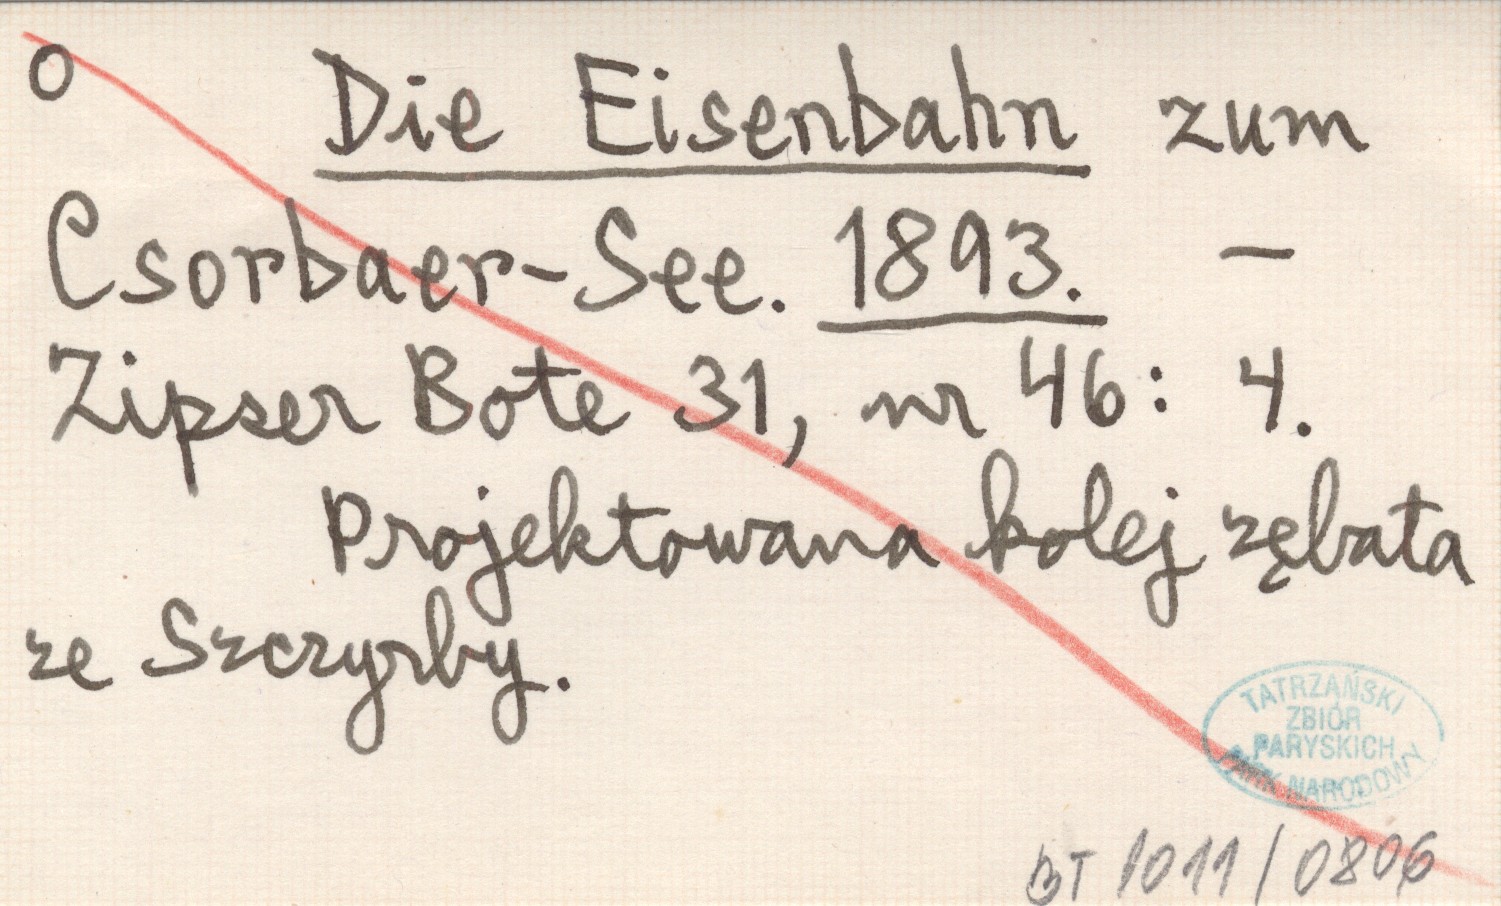 o Die Eisenbahn zum
Csorbaer-See. 1893. –
Zipser Bote 31, nr 46: 4.
Projektowana kolej zębata
ze Szczyrby.
TATRZAŃSKI
ZBIÓR
PARYSKICH
PARK NARODOWY
BT 1011/0806